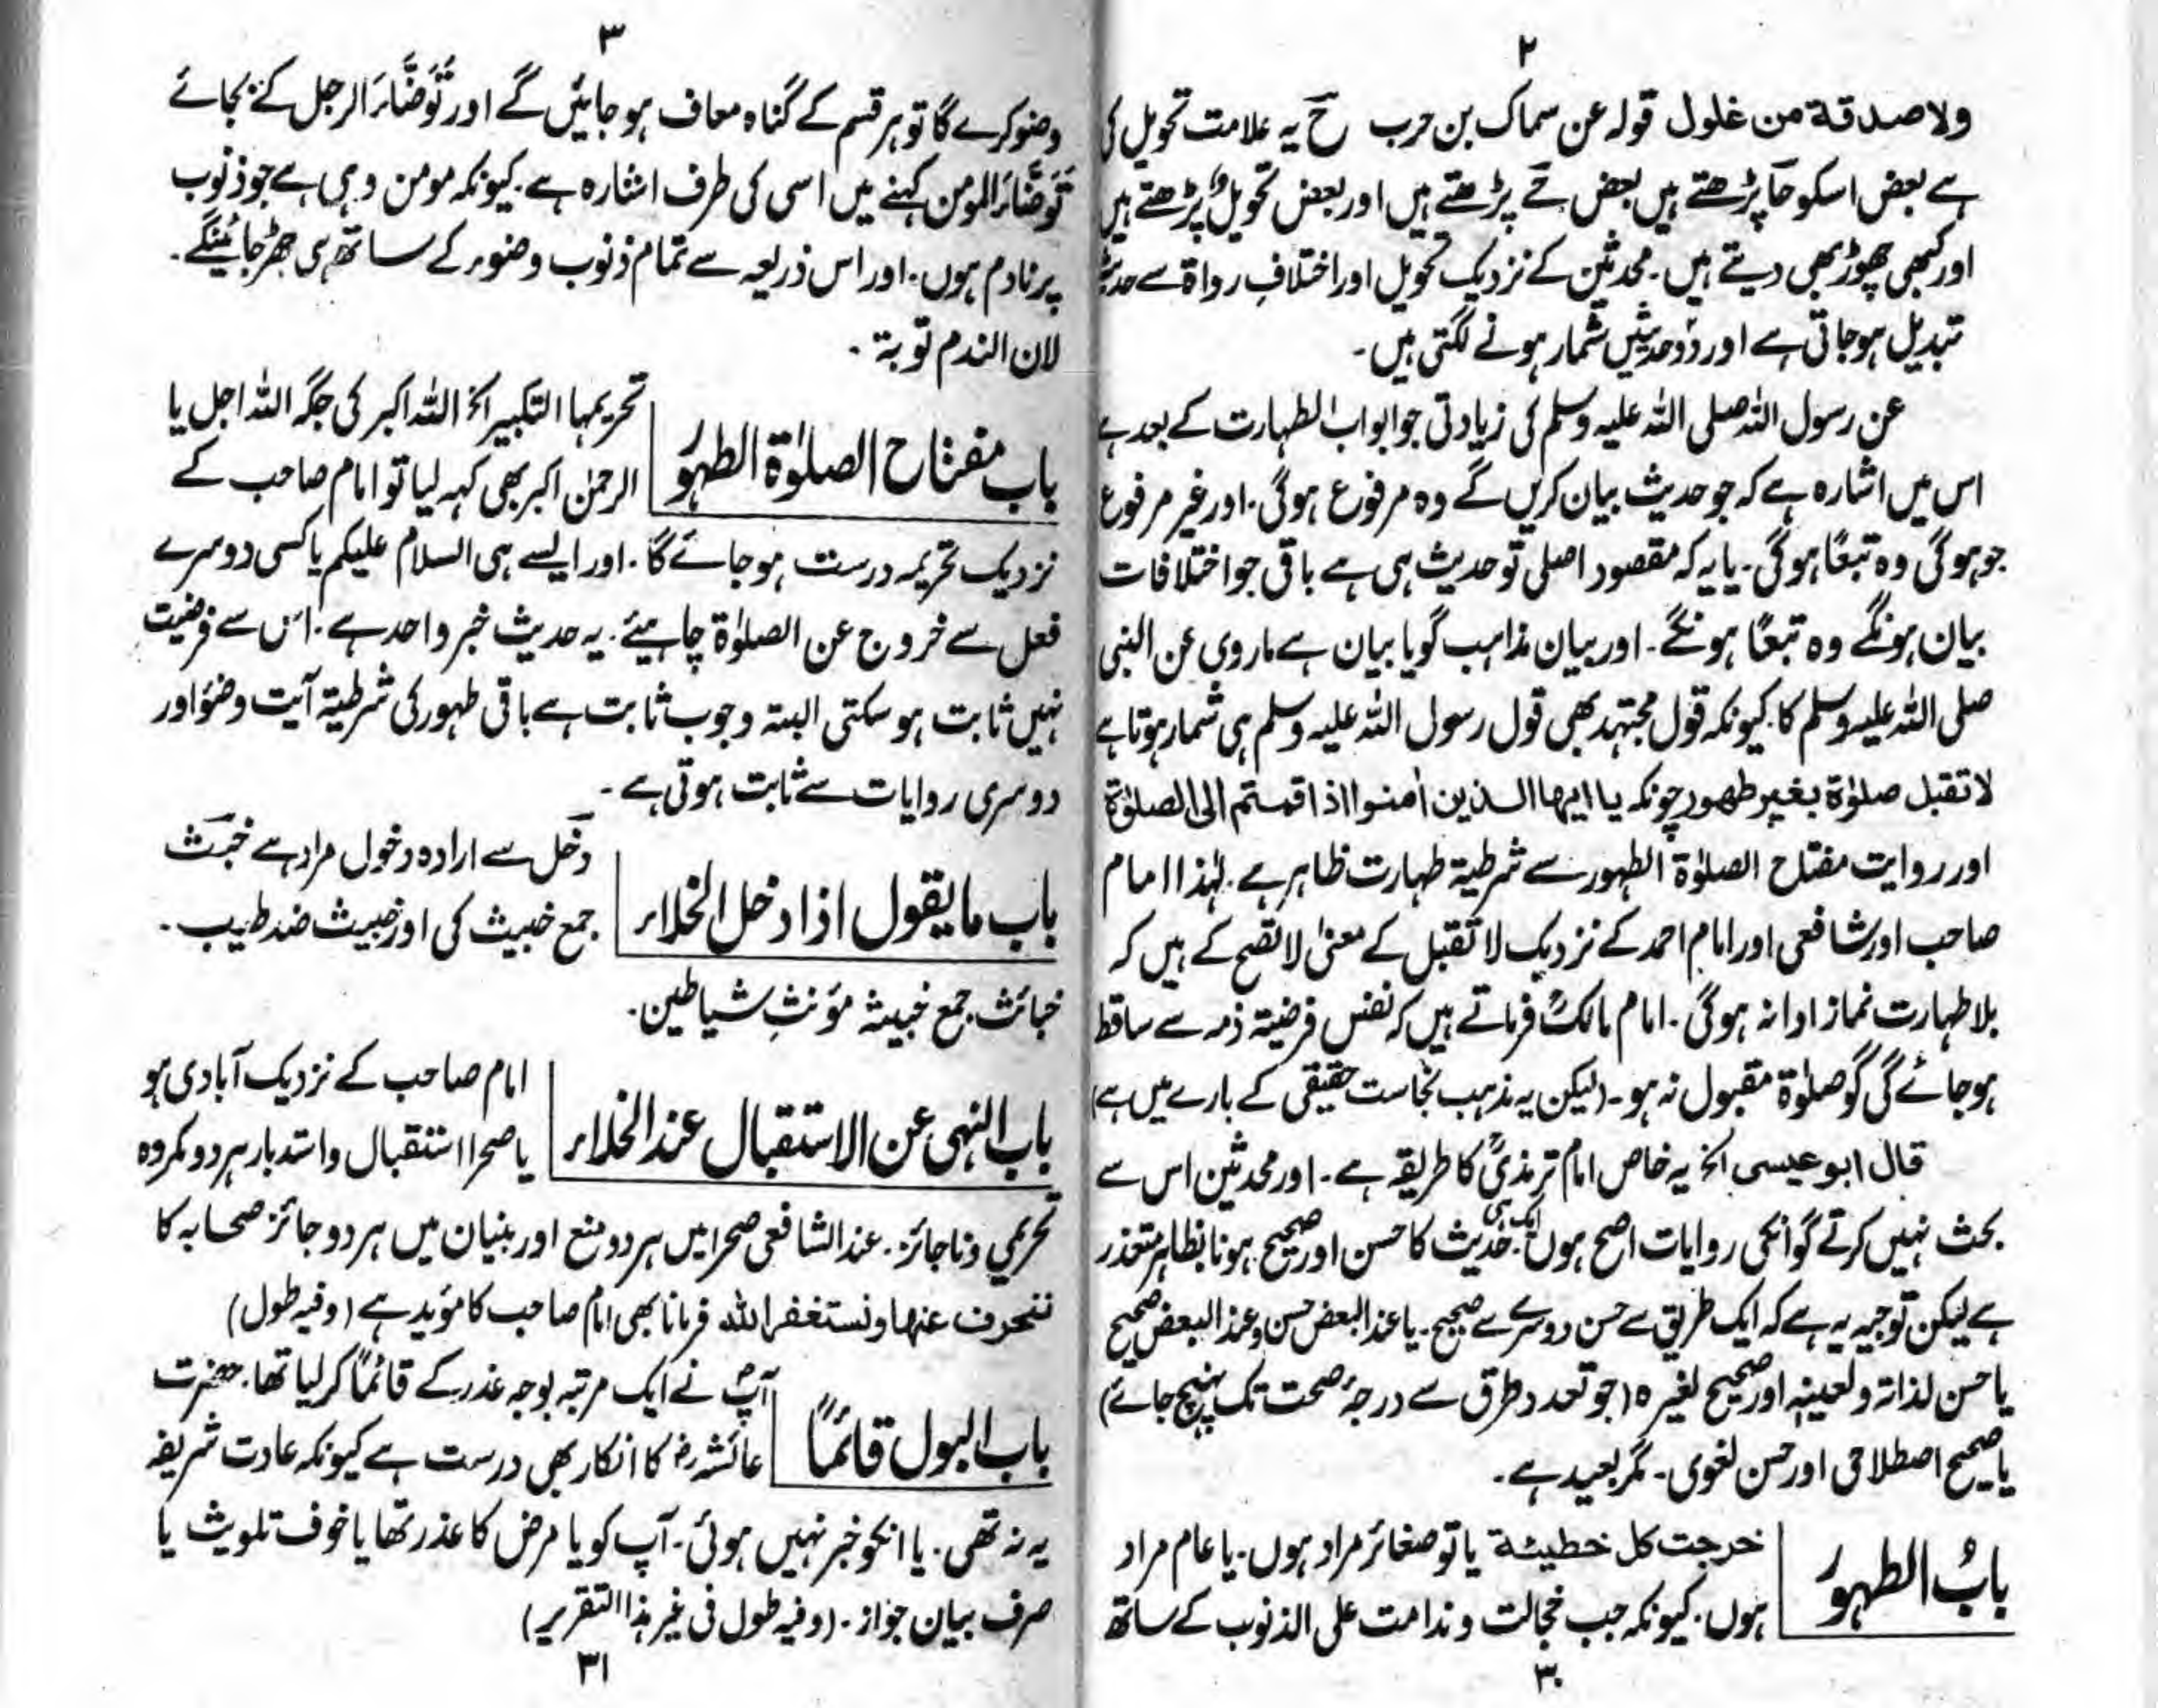 ۲
ولا صدقة من غلول قوله عن سماک بن حرب ح یہ علامت تحویل کی
ہے بعض اسکو حا پڑھتے ہیں بعض حے پڑھتے ہیں اور بعض تحویل پڑھتے ہیں
اور کبھی چھوڑ بھی دیتے ہیں۔ محدثین کے نزدیک تحویل اور اختلافِ رواۃ سے حدیث
تبدیل ہوجاتی ہے اور دو حدیثیں شمار ہونے لگتی ہیں۔
عن رسول اللہ صلی اللہ علیہ وسلم کی زیادتی جو ابواب الطہارت کے بعد ہے
اس میں اشارہ ہے کہ جو حدیث بیان کریں گے وہ مرفوع ہوگی۔ اور غیر مرفوع
جو ہوگی وہ تبعًا ہوگی۔ یا یہ کہ مقصود اصلی تو حدیث ہی ہے باقی جو اختلافات
بیان ہونگے وہ تبعًا ہونگے۔ اور بیان مذاہب گویا بیان ہے ماروی عن النبی
صلی اللہ علیہ وسلم کا۔ کیونکہ قول مجتہد بھی قول رسول اللہ علیہ وسلم ہی شمار ہوتا ہے
لا تقبل صلوٰة بغیر طهور چونکہ یا ایها الذین اٰمنوا اذا قمتم الی الصلوٰة
اور روایت مفتاح الصلوٰۃ الطہور سے شرطیۃ طہارت ظاہر ہے۔ لہٰذا امام
صاحب اور شافعی اور امام احمد کے نزدیک لا تقبل کے معنیٰ لا تصح کے ہیں کہ
بلا طہارت نماز ادا نہ ہوگی۔ امام مالکؒ فرماتے ہیں کہ نفس فرضیۃ ذمہ سے ساقط
ہوجائے گی گو صلوٰۃ مقبول نہ ہو۔ (لیکن یہ مذہب نجاست حقیقی کے بارے میں ہے)
قال ابو عیسی الخ یہ خاص امام ترمذیؒ کا طریقہ ہے۔ اور محدثین اس سے
بحث نہیں کرتے گو انکی روایات اصح ہوں ایک ہی حدیث کا حسن اور صحیح ہونا بظاہر متعذر
ہے لیکن توجیہ یہ ہے کہ ایک طریق سے حسن دوسرے سے صحیح۔ یا عند البعض حسن و عند البعض صحیح
یا حسن لذاتہ ولعینہٖ اور صحیح لغیرہ (جو تعدد طرق سے درجۂ صحت تک پہنچ جائے)
یا صحیح اصطلاحی اور حسن لغوی۔ مگر بعید ہے۔
بابُ الطہور
خرجت کل خطیئة یا تو صغائر مراد ہوں۔ یا عام مراد
ہوں۔ کیونکہ جب خجالت و ندامت علی الذنوب کے ساتھ
۳۰
۳
وضو کرے گا تو ہر قسم کے گناہ معاف ہوجائیں گے اور تَوَضَّاءَ الرجل کے بجائے
تَوَضَّاءَ المومن کہنے میں اسی کی طرف اشارہ ہے۔ کیونکہ مومن وہی ہے جو ذنوب
پر نادم ہوں۔ اور اس ذریعہ سے تمام ذنوب وضوء کے ساتھ ہی جھڑ جائینگے۔
لان الندم توبة۔
باب مفتاح الصلوٰۃ الطہور
تحریمہا التکبیر الخ اللہ اکبر کی جگہ اللہ اجل یا
الرحمٰن اکبر بھی کہہ لیا تو امام صاحب کے
نزدیک تحریمہ درست ہوجائے گا۔ اور ایسے ہی السلام علیکم یا کسی دوسرے
فعل سے خروج عن الصلوٰۃ چاہیئے۔ یہ حدیث خبر واحد ہے۔ اس سے فرضیت
نہیں ثابت ہوسکتی البتہ وجوب ثابت ہے باقی طہور کی شرطیۃ آیت وضو اور
دوسری روایات سے ثابت ہوتی ہے۔
باب ما یقول اذا دخل الخلاء
دَخَل سے ارادہ دخول مراد ہے خبث
جمع خبیث کی اور خبیث ضد طیب۔
خبائث جمع خبیثہ مؤنثِ شیاطین۔
باب النہی عن الاستقبال عند الخلاء
امام صاحب کے نزدیک آبادی ہو
یا صحرا استقبال و استدبار ہر دو مکروہ
تحریمی و ناجائز۔ عند الشافعی صحرا میں ہر دو منع اور بنیان میں ہر دو جائز صحابہ کا
ننحرف عنها ونستغفر الله فرمانا بھی امام صاحب کا مؤید ہے (وفیہ طول)
باب البول قائمًا
آپؐ نے ایک مرتبہ بوجہ عذر کے قائمًا کرلیا تھا۔ حضرت
عائشہؓ کا انکار بھی درست ہے کیونکہ عادت شریفہ
یہ نہ تھی۔ یا انکو خبر نہیں ہوئی۔ آپ کو یا مرض کا عذر تھا یا خوف تلویث یا
صرف بیان جواز۔ (وفیہ طول فی غیر ہذا التقریر)
۳۱